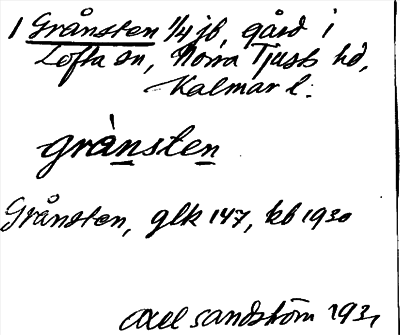 1 Grånsten 1/4 jb, gård i
Lofta sn, Norra Tjust hd,
Kalmar l.
grànsten
Grånsten, glk 147, kb 1930
Axel Sandström 1931